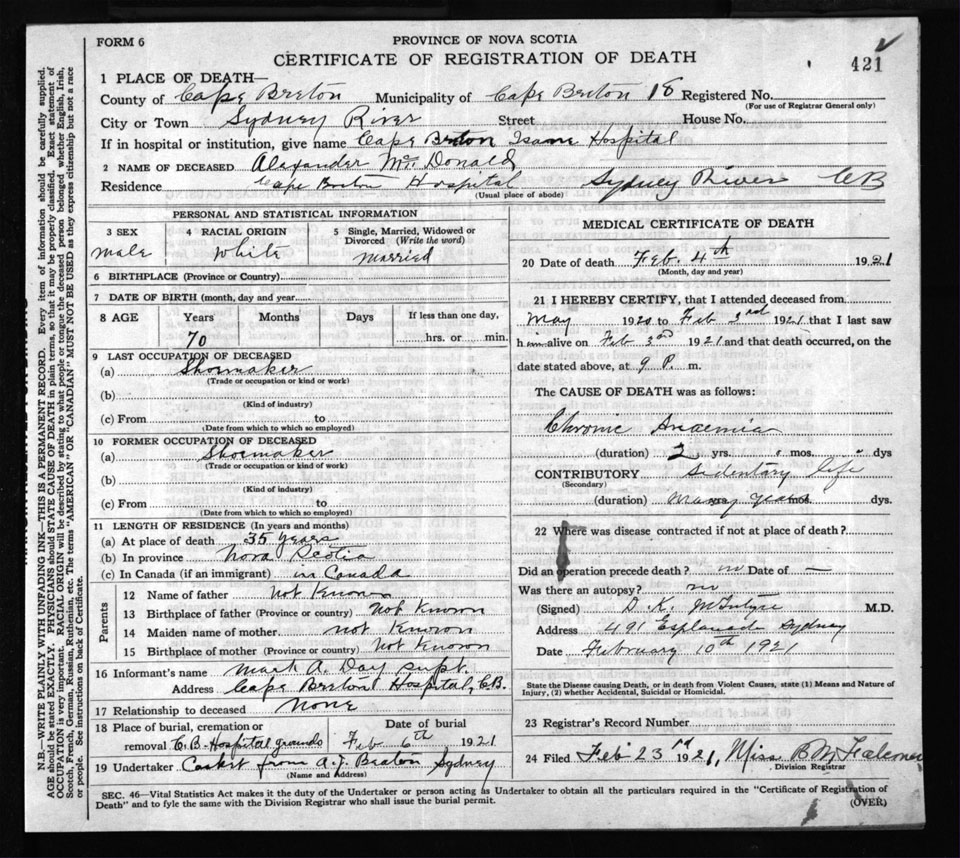 FORM 6
PROVINCE OF NOVA SCOTIA
CERTIFICATE OF REGISTRATION OF DEATH
421
1 PLACE OF DEATH—
County of Cape Breton Municipality of Cape Breton 18 Registered No.
(For use of Registrar General only)
City or Town Sydney River Street House No.
If in hospital or institution, give name Cape Breton Hospital
2 NAME OF DECEASED Alexander McDonald
Residence Cape Breton Hospital Sydney River CB
(Usual place of abode)
PERSONAL AND STATISTICAL INFORMATION
3 SEX 4 RACIAL ORIGIN 5 Single, Married, Widowed or Divorced (Write the word)
male white married
6 BIRTHPLACE (Province or Country)
7 DATE OF BIRTH (month, day and year)
8 AGE Years Months Days If less than one day,
70 hrs. or min.
9 LAST OCCUPATION OF DECEASED
(a) Shoemaker
(Trade or occupation or kind or work)
(b)
(Kind of industry)
(c) From to
(Date from which to which so employed)
10 FORMER OCCUPATION OF DECEASED
(a) Shoemaker
(Trade or occupation or kind or work)
(b)
(Kind of industry)
(c) From to
(Date from which to which so employed)
11 LENGTH OF RESIDENCE (In years and months)
(a) At place of death 35 years
(b) In province Nova Scotia
(c) In Canada (if an immigrant) in Canada
Parents
12 Name of father Not Known
13 Birthplace of father (Province or country) Not Known
14 Maiden name of mother Not Known
15 Birthplace of mother (Province or country) Not Known
16 Informant's name Mark A. Day supt.
Address Cape Breton Hospital, C.B.
17 Relationship to deceased None
18 Place of burial, cremation or removal C.B. Hospital grounds
Date of burial
Feb 6th 1921
19 Undertaker Casket from A.J. Beaton Sydney
(Name and Address)
MEDICAL CERTIFICATE OF DEATH
20 Date of death Feb. 4th 1921
(Month, day and year)
21 I HEREBY CERTIFY, that I attended deceased from
May 1920 to Feb 3rd 1921 that I last saw
him alive on Feb 3rd 1921 and that death occurred, on the
date stated above, at 9 P. m.
The CAUSE OF DEATH was as follows:
Chronic Anaemia
(duration) 2 yrs. mos. dys
CONTRIBUTORY Sedentary life
(Secondary)
(duration) Many years dys.
22 Where was disease contracted if not at place of death?
Did an operation precede death? no Date of —
Was there an autopsy? no
(Signed) D. K. McIntyre M.D.
Address 491 Esplanade Sydney
Date February 10th 1921
State the Disease causing Death, or in death from Violent Causes, state (1) Means and Nature of
Injury, (2) whether Accidental, Suicidal or Homicidal.
23 Registrar's Record Number
24 Filed Feb 23rd 1921, Miss B M Falconer
Division Registrar
SEC. 46—Vital Statistics Act makes it the duty of the Undertaker or person acting as Undertaker to obtain all the particulars required in the "Certificate of Registration of
Death" and to fyle the same with the Division Registrar who shall issue the burial permit.
(OVER)
N.B.—WRITE PLAINLY WITH UNFADING INK—THIS IS A PERMANENT RECORD. Every item of information should be carefully supplied.
AGE should be stated EXACTLY. PHYSICIANS should STATE CAUSE OF DEATH in plain terms, so that it may be properly classified. Exact statement of
OCCUPATION is very important. RACIAL ORIGIN will be described by stating to what people or tongue the deceased person belonged whether English, Irish,
Scotch, French, German, Russian, Ruthenian, etc. The terms "AMERICAN" OR "CANADIAN" MUST NOT BE USED as they express citizenship but not a race
or people. See instructions on back of Certificate.